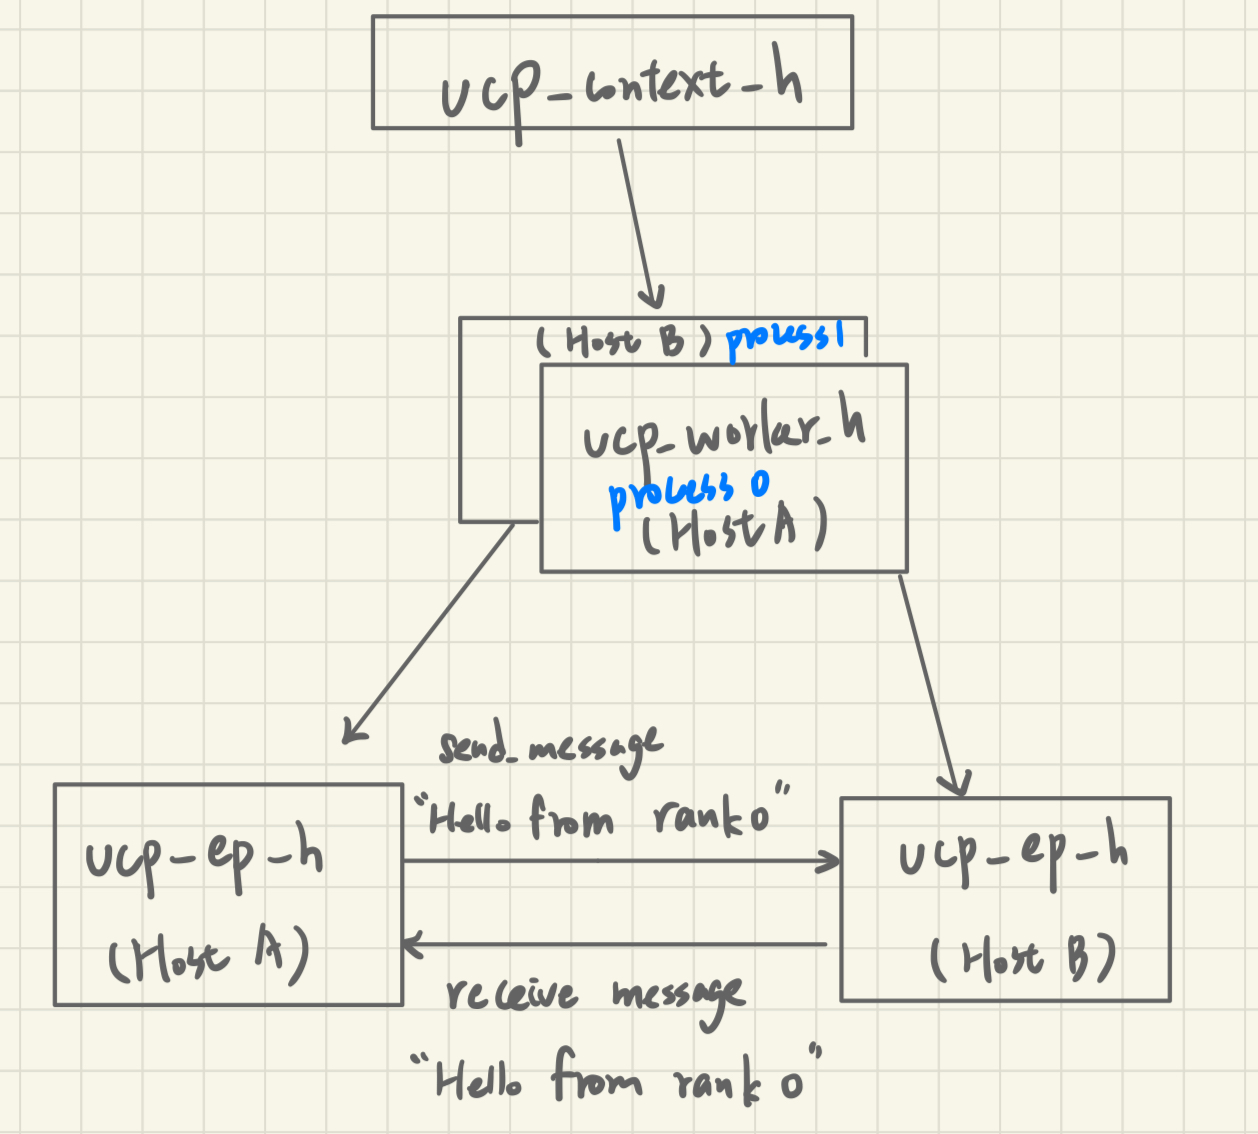 ucp_context_h
(Host B) process1
ucp_worker_h
process 0
(Host A)
send_message
"Hello from rank0"
ucp_ep_h
(Host A)
ucp_ep_h
(Host B)
receive message
"Hello from rank 0"